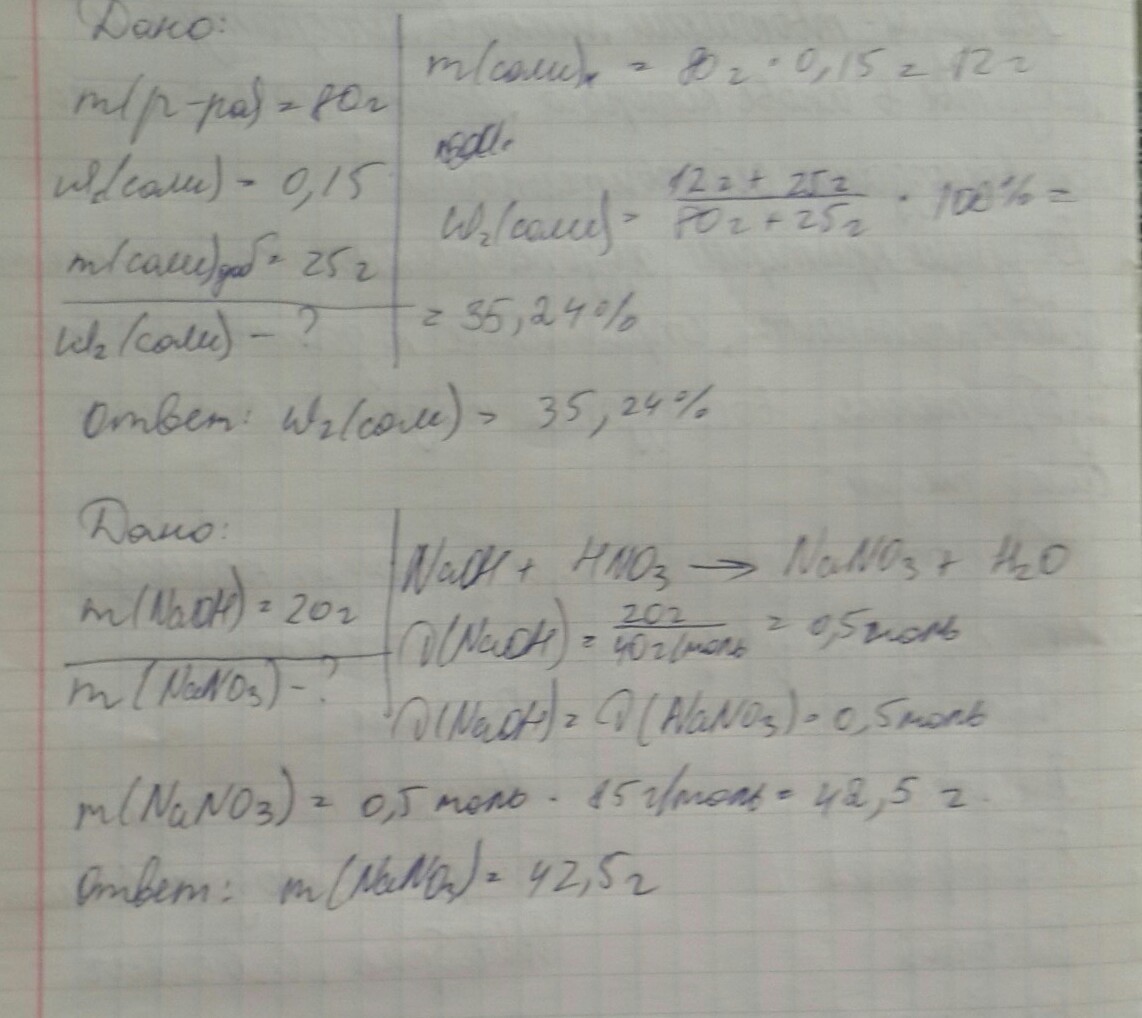 Дано:
m(р-ра) = 80г
w₁(соли) = 0,15
m(соли)доб = 25г
w₂(соли) - ?
m(соли)₁ = 80г · 0,15 = 12г
w₂(соли) = 12г + 25г / 80г + 25г · 100% =
= 35,24%
Ответ: w₂(соли) = 35,24%
Дано:
m(NaOH) = 20г
m(NaNO₃) - ?
NaOH + HNO₃ → NaNO₃ + H₂O
ν(NaOH) = 20г / 40г/моль = 0,5моль
ν(NaOH) = ν(NaNO₃) = 0,5моль
m(NaNO₃) = 0,5моль · 85г/моль = 42,5г
Ответ: m(NaNO₃) = 42,5г